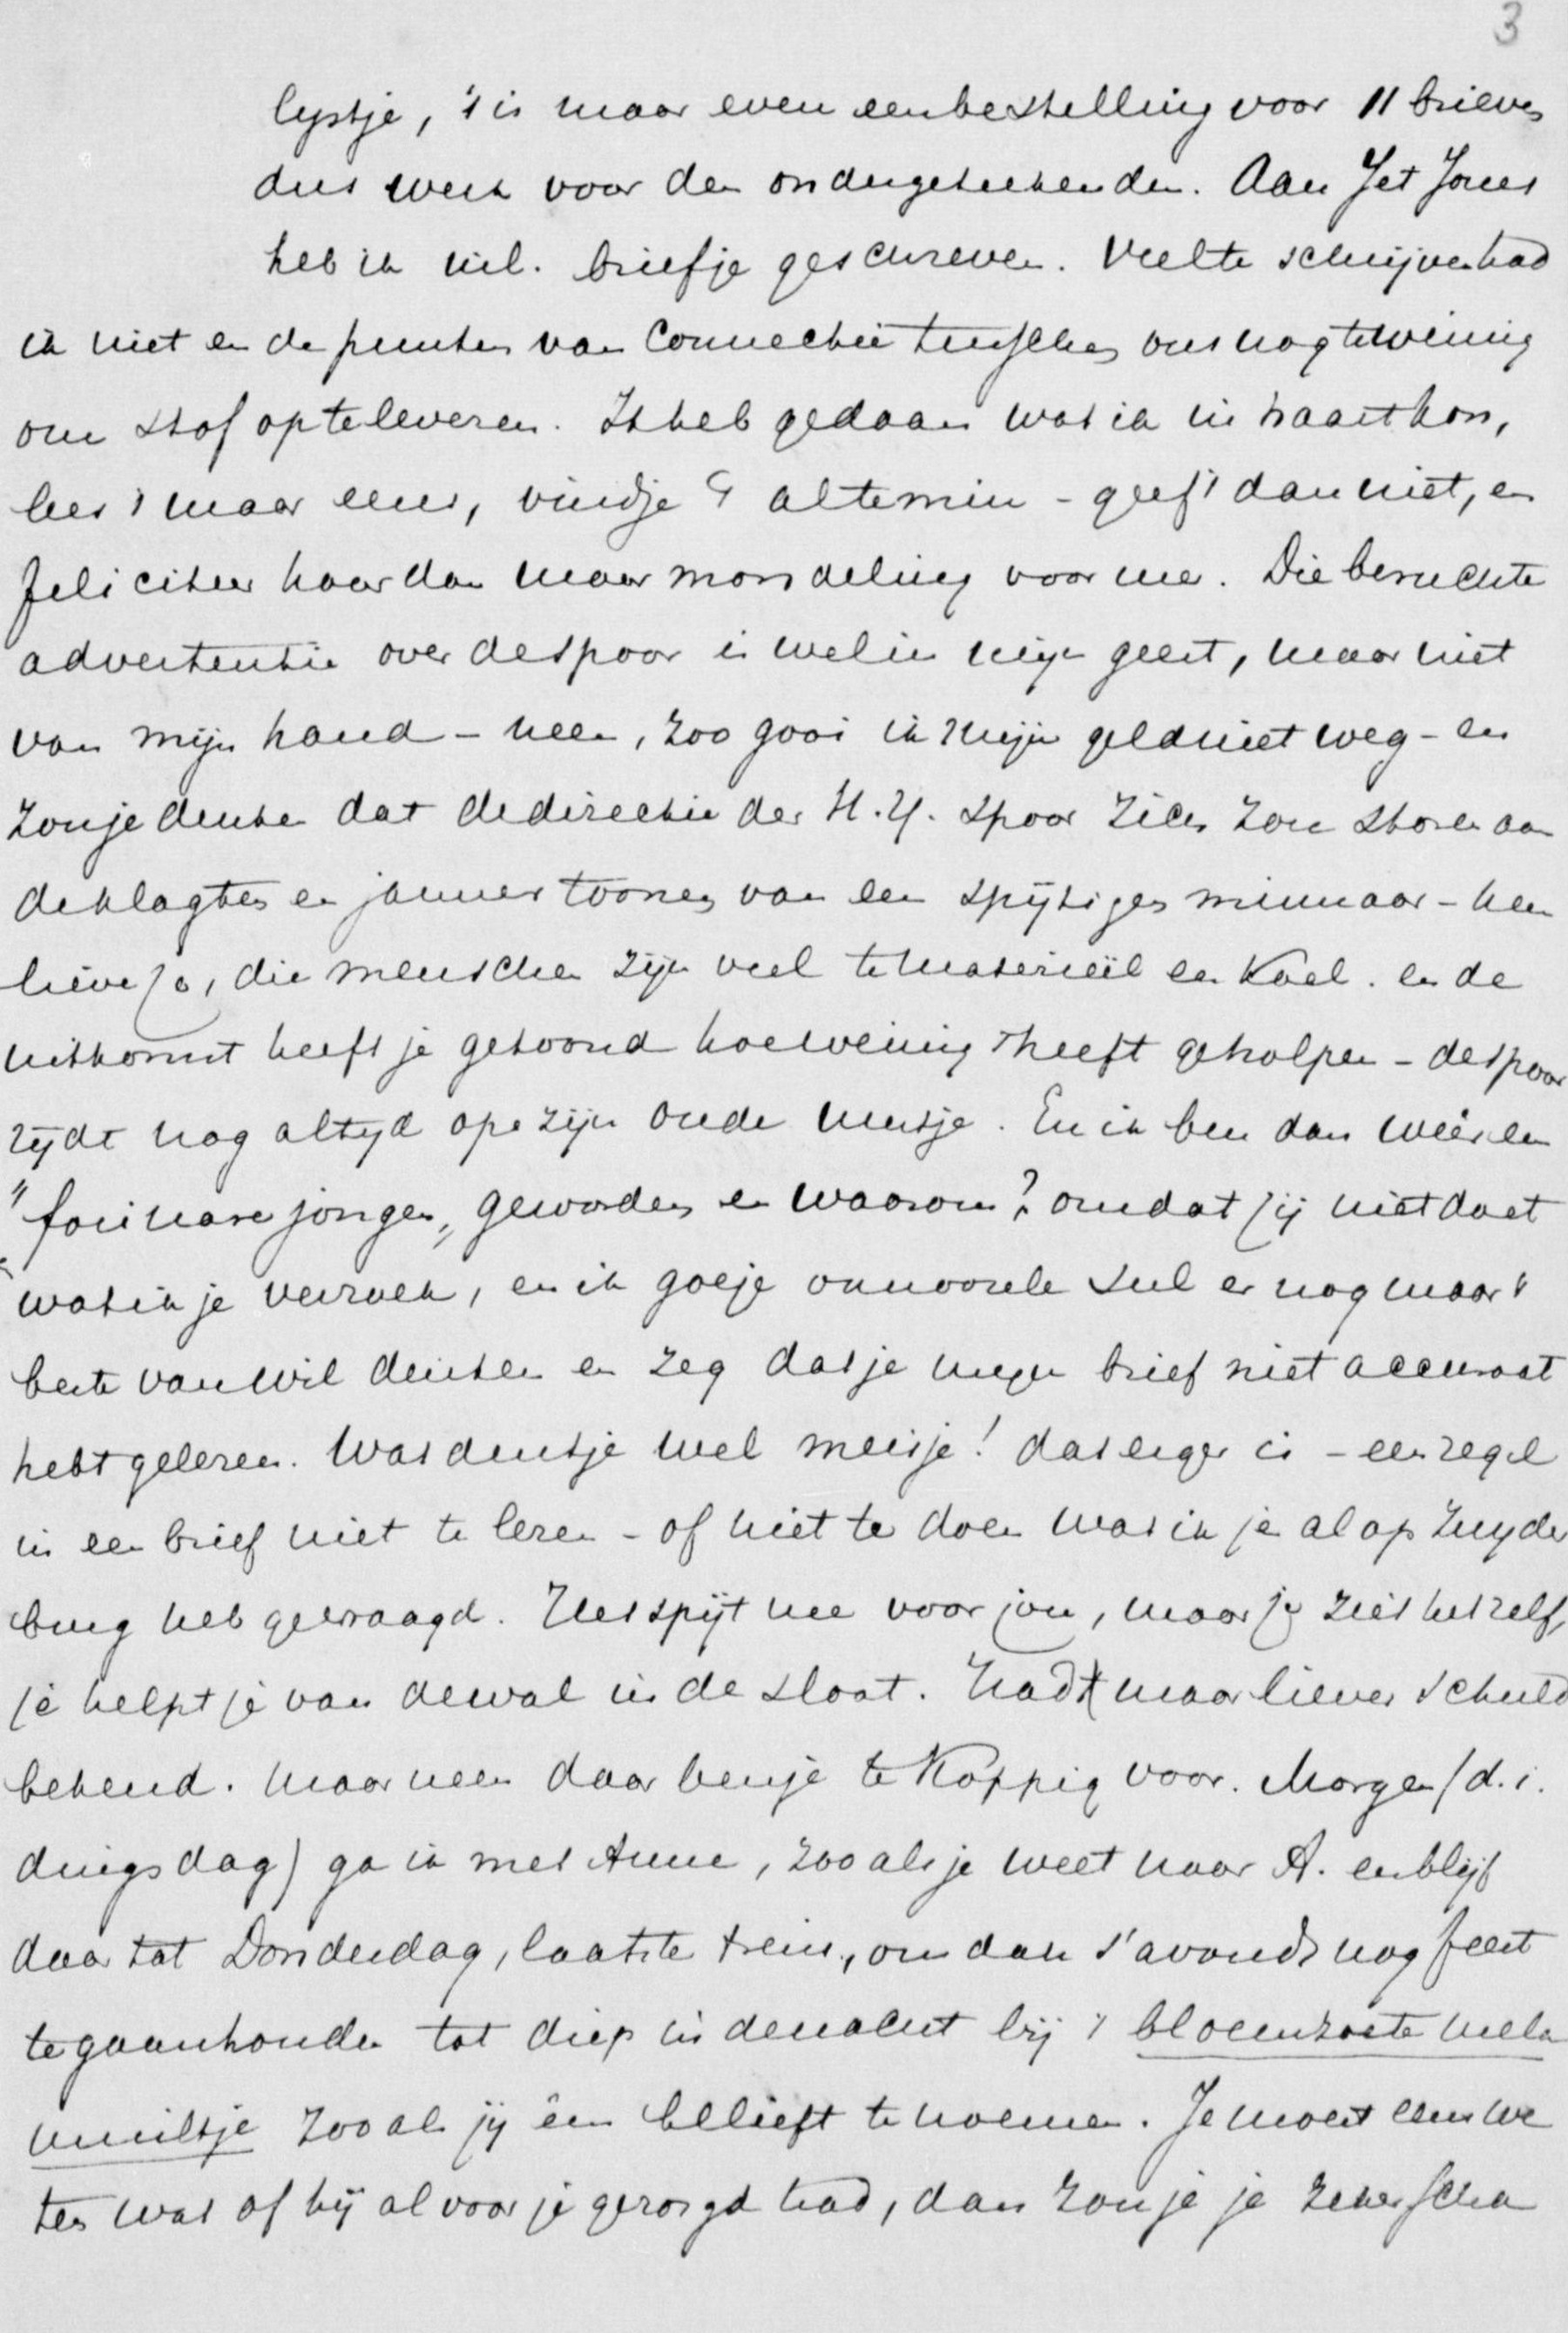 3
lystje, 't is maar even een bestelling voor 11 brieven
dus werk voor den ondergeteekenden. Aan Jet Jones
heb ik inl. briefje geschreven. Veel te schrijven had
ik niet en de punten van Connectie tusschen ons nog te weinig
om stof op te leveren. Ik heb gedaan wat ik in haast kon,
lees 't maar eens, vindje 't al te min - geef 't dan niet, en
feliciteer haar dan maar mondeling voor me. Die beruchte
advertentie over de spoor is wel in mijn geest, maar niet
van mijn hand - neen, zoo gooi ik mijn geld niet weg - en
zou je denken dat de directie der H.Y. spoor zich zou storen aan
de klagten en jammertoonen van een spijtigen minnaar - neen
lieve Jo, die menschen zijn veel te materieël en Koel. en de
uitkomst heeft je getoond hoe weinig 't heeft geholpen - de spoor
rijdt nog altyd op zijn oude uurtje. En ik ben dan weêr een
"foei nare jongen" geworden en waarom? omdat jij niet doet
wat ik je verzoek, en ik goeje onnoozele sul er nog maar 't
beste van wil denken en zeg dat je mijn brief niet accuraat
hebt gelezen. Wat denkje wel meisje! dat erger is - een regel
in een brief niet te lezen - of niet te doen wat ik je al op Zuyder
burg heb gevraagd. Het spijt me voor jou, maar je ziet het zelf,
je helpt je van de wal in de sloot. Hadt maar liever schuld
bekend. maar neen daar ben je te Koppig voor. Morgen (d.i.
dingsdag) ga ik met Anne, zooals je weet naar A. en blijf
daar tot Donderdag, laatste trein, om dan s'avonds nog feest
te gaan houden tot diep in de nacht bij 't bloemzoete melk
muiltje zooals jij êm belieft te noemen. Je moest eens we
ten wat of hij al voor je gezorgd had, dan zou je je zeker scha